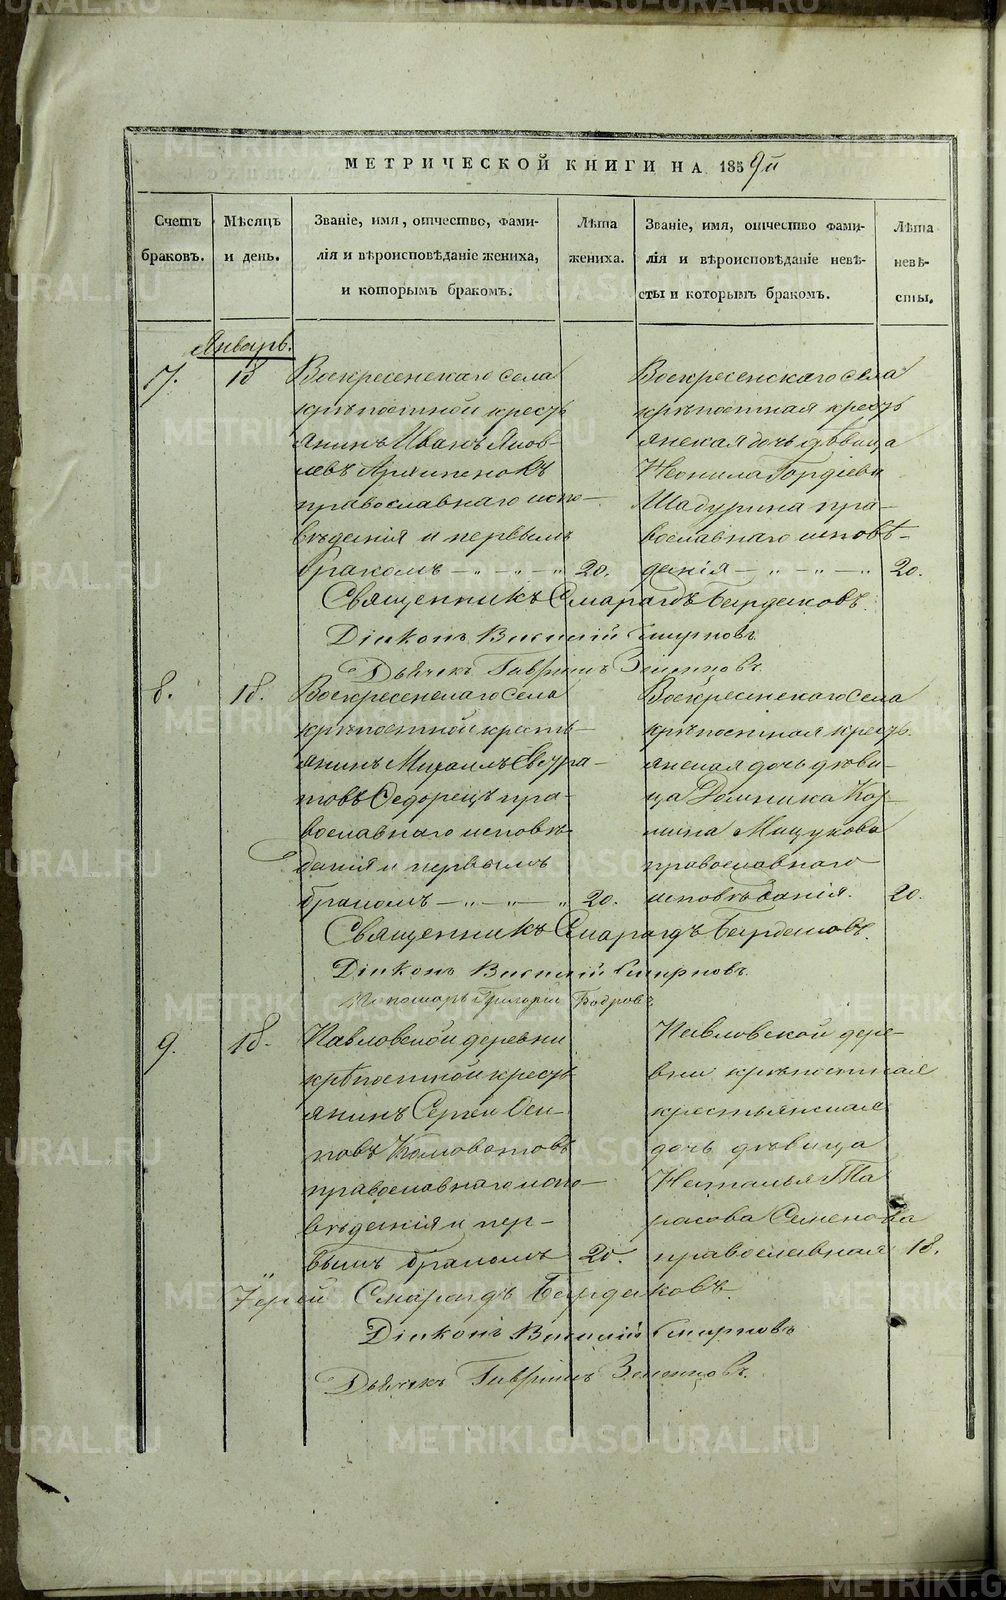 МЕТРИЧЕСКОЙ КНИГИ НА 1859й
Счетъ браковъ.
Мѣсяцъ и день.
Званіе, имя, отчество, фами-
лія и вѣроисповѣданіе жениха,
и которымъ бракомъ.
Лѣта жениха.
Званіе, имя, отчество фами-
лія и вѣроисповѣданіе невѣ-
сты и которымъ бракомъ.
Лѣта невѣ-
сты.
Январь.
7. 18
Воскресенскаго села
крѣпостной кресть
янинъ Иванъ Яков-
левъ
православнаго испо-
вѣданія и первымъ
бракомъ 20.
Воскресенскаго села
крѣпостная кресть
янская дочь дѣвица
Неонила Гордіева
Шадурина пра-
вославнаго исповѣ-
данія 20.
Священникъ Смарагдъ Бардаковъ.
Діаконъ Василій Смирновъ
Дьячекъ Гавріилъ
8. 18.
Воскресенскаго села
крѣпостной кресть-
янинъ Михаилъ Евстра-
товъ Федорецъ пра-
вославнаго исповѣ
данія и первымъ
бракомъ 20.
Воскресенскаго села
крѣпостная кресть.
янская дочь дѣви-
ца Домника Кор-
нилова
православнаго
исповѣданія. 20.
Священникъ Смарагдъ Бардаковъ.
Діаконъ Василій Смирновъ.
Пономарь Григорій Бодровъ
9. 18.
Павловской деревни
крѣпостной кресть
янинъ Сергей Оси-
повъ
православнаго испо-
вѣданія и пер-
вымъ бракомъ 20.
Павловской дере-
вни крѣпостная
крестьянская
дочь дѣвица
Наталья Та
расова Семенова
православная 18.
Іерей Смарагдъ Бардаковъ.
Діаконъ Василій Смирновъ
Дьячекъ Гавріилъ
METRIKI.GASO-URAL.RU